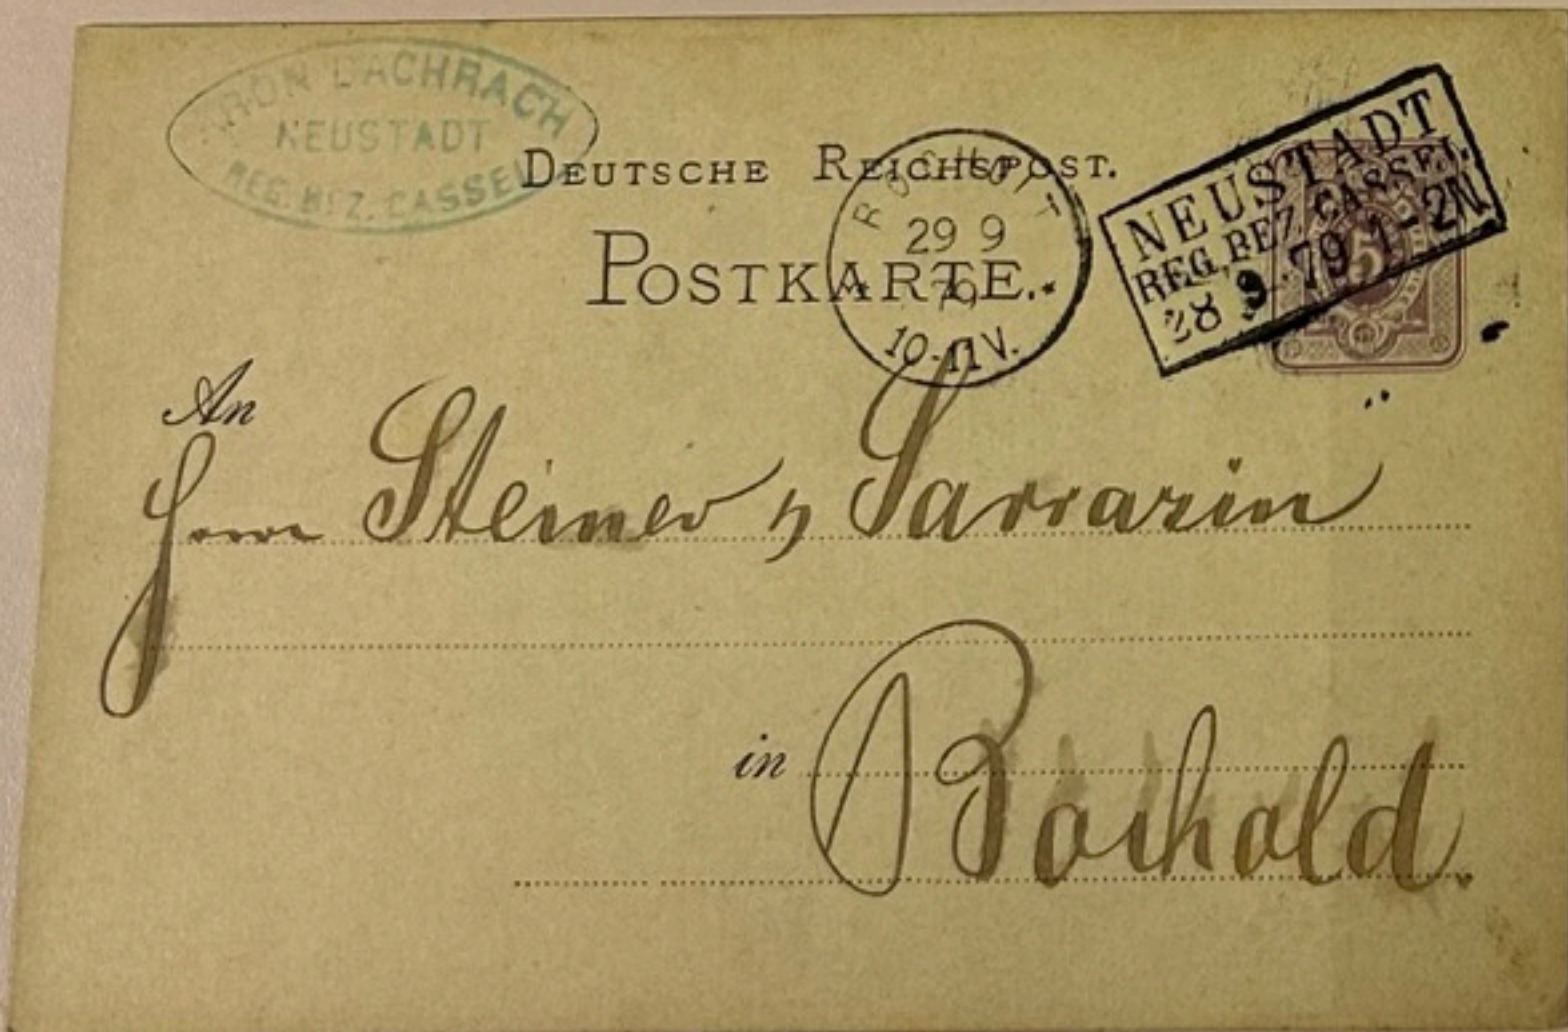 ARON BACHRACH
NEUSTADT
REG. BEZ. CASSEL
DEUTSCHE REICHSPOST.
POSTKARTE.
BOCHOLT
29 9
79
10-11V.
NEUSTADT
REG. BEZ. CASSEL
28 9 79 1-2N
5
An
Herrn Steiner & Sarrazin
in Bocholt.